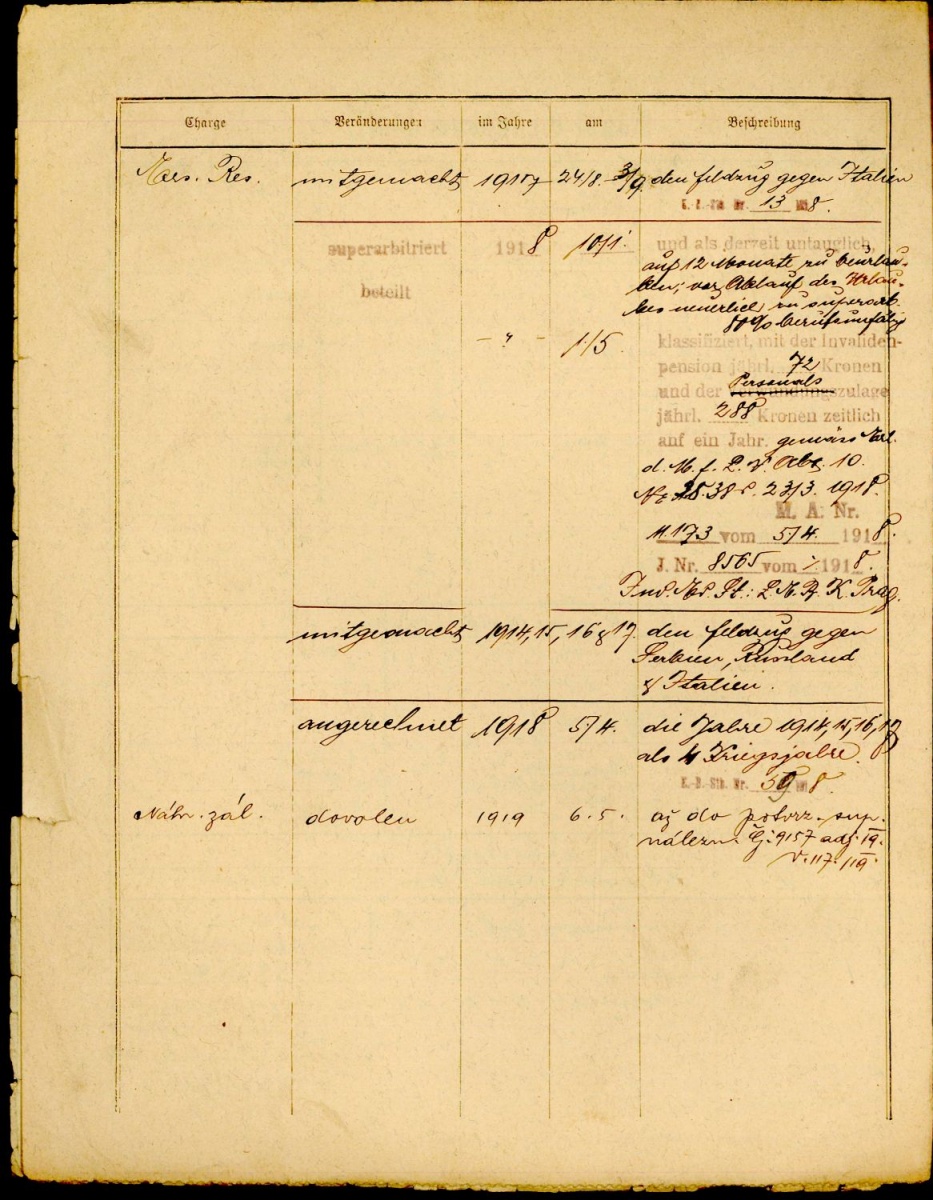 Charge Veränderungen im Jahre am Beschreibung
Ers. Res. mitgemacht 1917 24/8. - 3/9. den feldzug gegen Italien
K.-B.-Stb. Nr. 13 191 8.
superarbitriert 1918 10/1. und als derzeit untauglich,
auf 12 Monate zu beurlau-
ben; vor Ablauf des Urlau-
bes neuerlich zu superarb.
beteilt
80% berufsunfähig
- " - 1/5. klassifiziert, mit der Invaliden-
pension jährl. 72 Kronen
Personals
und der Verwundungszulage
jährl. 288 Kronen zeitlich
auf ein Jahr. gemäss Erl.
d. M. f. L. V. Abt. 10.
Nr. 38 v. 23/3. 1918.
M. A. Nr.
11.173 vom 5/4. 1918.
J. Nr. 8565 vom 1918.
St.: L.W.B.K. Prag.
mitgemacht 1914, 15, 16 & 17. den feldzug gegen
Serbien, Russland
& Italien.
angerechnet 1918 5/4. die Jahre 1914, 15, 16, 17
als 4 Kriegsjahre.
K.-B.-Stb. Nr. 59 191 8.
Náhr. zál. dovolen 1919 6. 5. až do potvrz. sup.
nálezu. Čj: 9157 adj. 19.